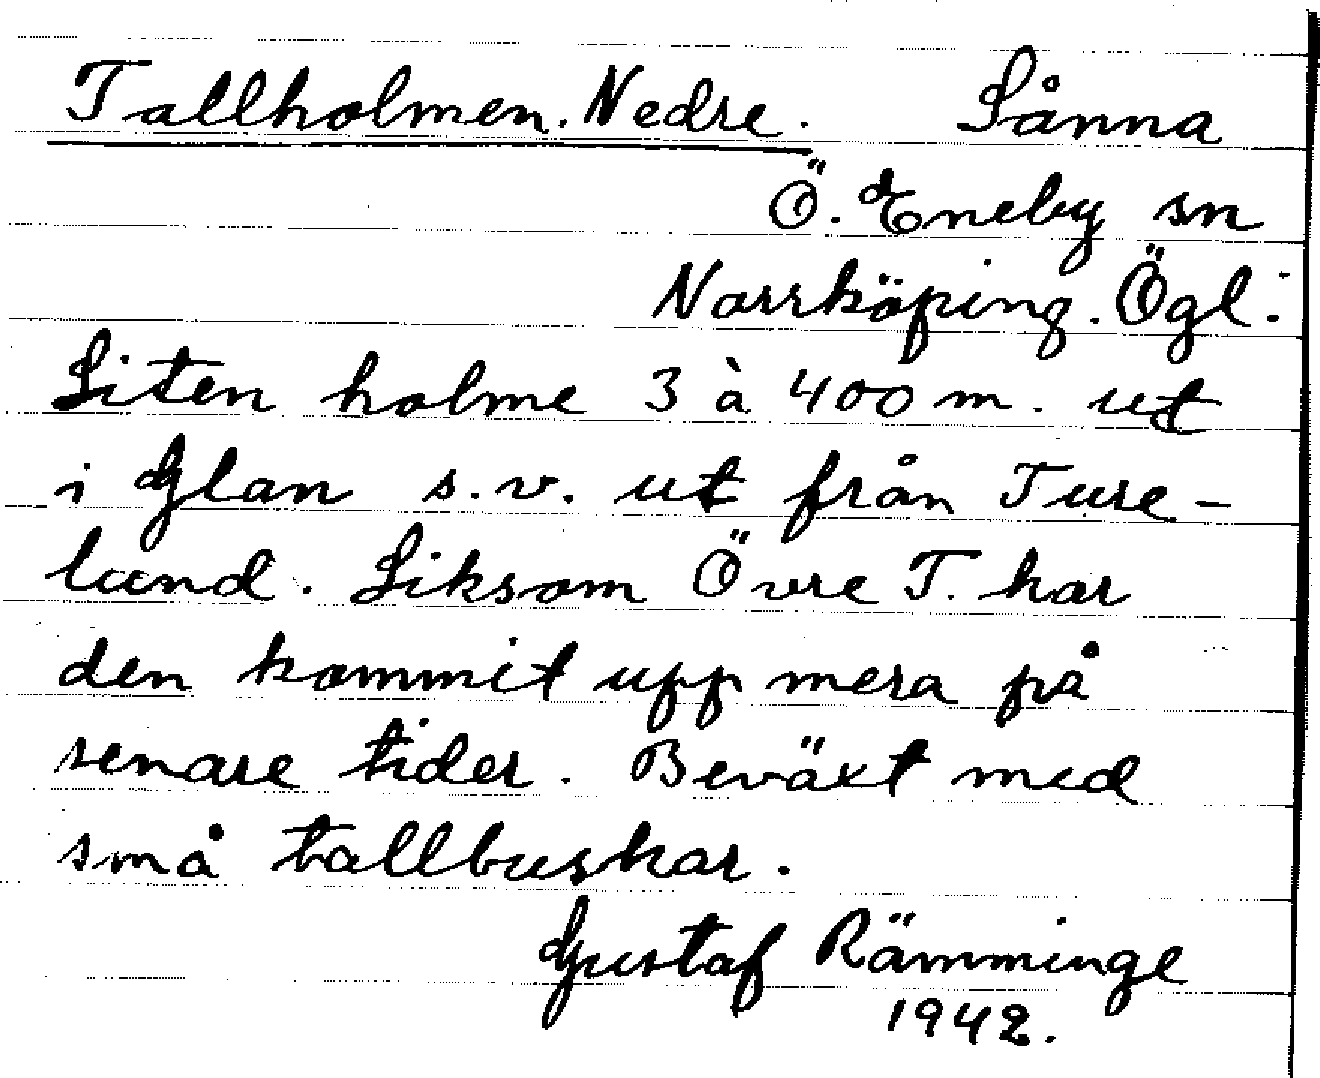 Tallholmen. Nedre. Sånna
Ö. Eneby sn
Norrköping. Ögl.
Liten holme 3 à 400 m. ut
i Glan s.v. ut från Ture-
lund. Liksom Övre T. har
den kommit upp mera på
senare tider. Beväxt med
små tallbuskar.
Gustaf Rämminge
1942.